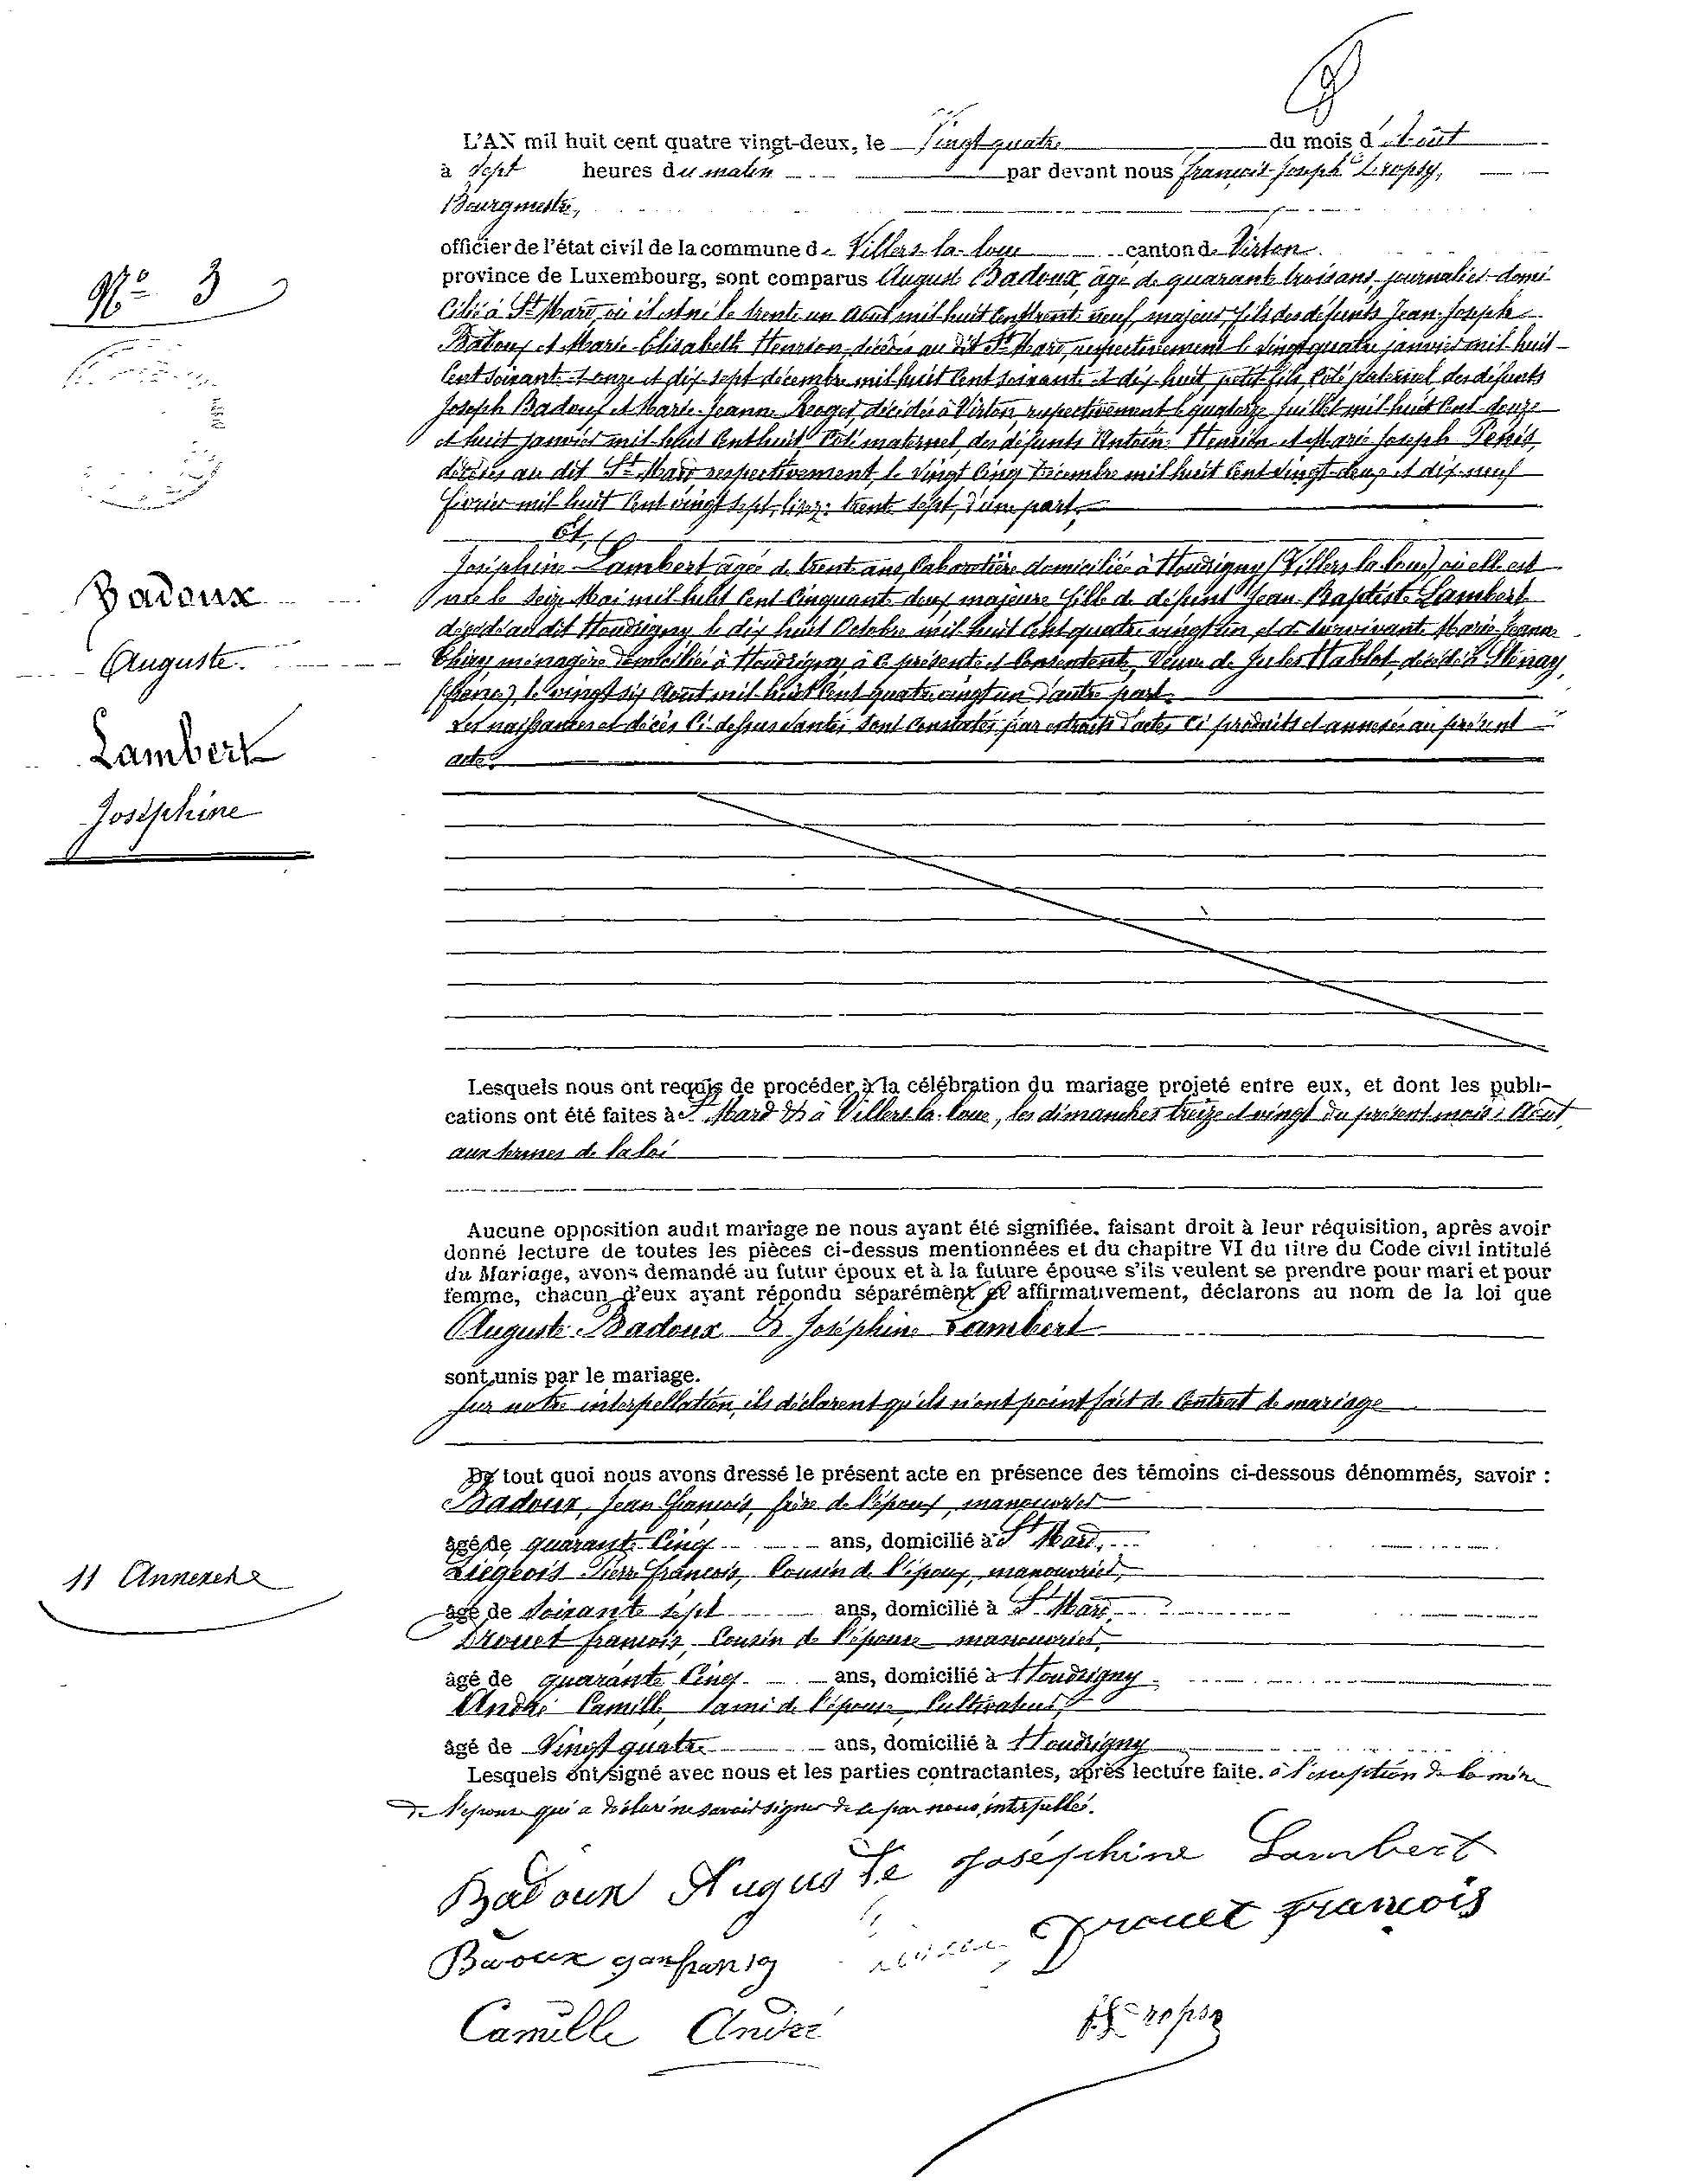 L'AN mil huit cent quatre vingt-deux, le Vingt quatre du mois d'Août
à Sept heures du matin par devant nous françois-Joseph Lropsy,
Bourgmestre,
officier de l'état civil de la commune de Villers-la-loue canton de Virton
N° 3
province de Luxembourg, sont comparus Auguste Badoux, âgé de quarante trois ans, journalier domi
cilié à St Mard, où il est né le trente un août mil huit cent trente neuf, majeur, fils des défunts Jean-Joseph
Badoux et Marie Elisabeth Henrion, décédés au dit St Mard, respectivement le vingt quatre janvier mil huit
Cent soixante et onze et dix sept décembre mil huit Cent soixante et dix-huit, petit-fils Côté paternel des défunts
Joseph Badoux et Marie-Jeanne Roger, décédés à Virton, respectivement le quatorze juillet mil huit Cent douze
et huit janvier mil huit Cent huit, Côté maternel, des défunts Antoine Henrion et Marie Joseph Pénis,
décédés au dit St Mard respectivement, le vingt Cinq Décembre mil huit Cent vingt-deux et dix-neuf
février mil huit Cent vingt sept, lisez: trente sept, d'une part,
Et,
Joséphine Lambert, âgée de trente ans, Cabaretière domiciliée à Houdrigny (Villers-la-loue) où elle est
née le Seize Mai mil huit Cent Cinquante deux, majeure fille de défunt Jean-Baptiste Lambert
Badoux
décédé au dit Houdrigny le dix huit Octobre mil huit Cent quatre vingt un et de survivante Marie-Jeanne
Auguste.
Thiry ménagère domiciliée à Houdrigny, à ce présente et Consentante, Veuve de Jules Hablot, décédé à Sténay,
(france), le vingt six Août mil huit Cent quatre vingt un d'autre part.
Les naissances et décès Ci-dessus vantés sont Constatés par extraits d'actes Ci produits et annexés au présent
Lambert
acte.
Joséphine
Lesquels nous ont requis de procéder à la célébration du mariage projeté entre eux, et dont les publi-
cations ont été faites à St Mard & à Villers-la-loue, les dimanches treize et vingt du présent mois d'Août,
aux termes de la loi
Aucune opposition audit mariage ne nous ayant été signifiée, faisant droit à leur réquisition, après avoir
donné lecture de toutes les pièces ci-dessus mentionnées et du chapitre VI du titre du Code civil intitulé
du Mariage, avons demandé au futur époux et à la future épouse s'ils veulent se prendre pour mari et pour
femme, chacun d'eux ayant répondu séparément et affirmativement, déclarons au nom de la loi que
Auguste Badoux & Joséphine Lambert
sont unis par le mariage.
Sur notre interpellation, ils déclarent qu'ils n'ont point fait de Contrat de mariage
De tout quoi nous avons dressé le présent acte en présence des témoins ci-dessous dénommés, savoir :
Badoux, Jean françois, frère de l'époux, manouvrier
âgé de quarante Cinq ans, domicilié à St Mard,
Liégeois Pierre françois, Cousin de l'époux, manouvrier,
11 Annexes
âgé de soixante sept ans, domicilié à St Mard
Drouet françois, Cousin de l'épouse manouvrier,
âgé de quarante Cinq ans, domicilié à Houdrigny
André Camille, ami de l'épouse, Cultivateur,
âgé de Vingt quatre ans, domicilié à Houdrigny
Lesquels ont signé avec nous et les parties contractantes, après lecture faite. à l'exception de la mère
De l'épouse qui a déclaré ne savoir signer de ce par nous interpellée.
Badoux Auguste Joséphine Lambert
Drouet francois
Camille André